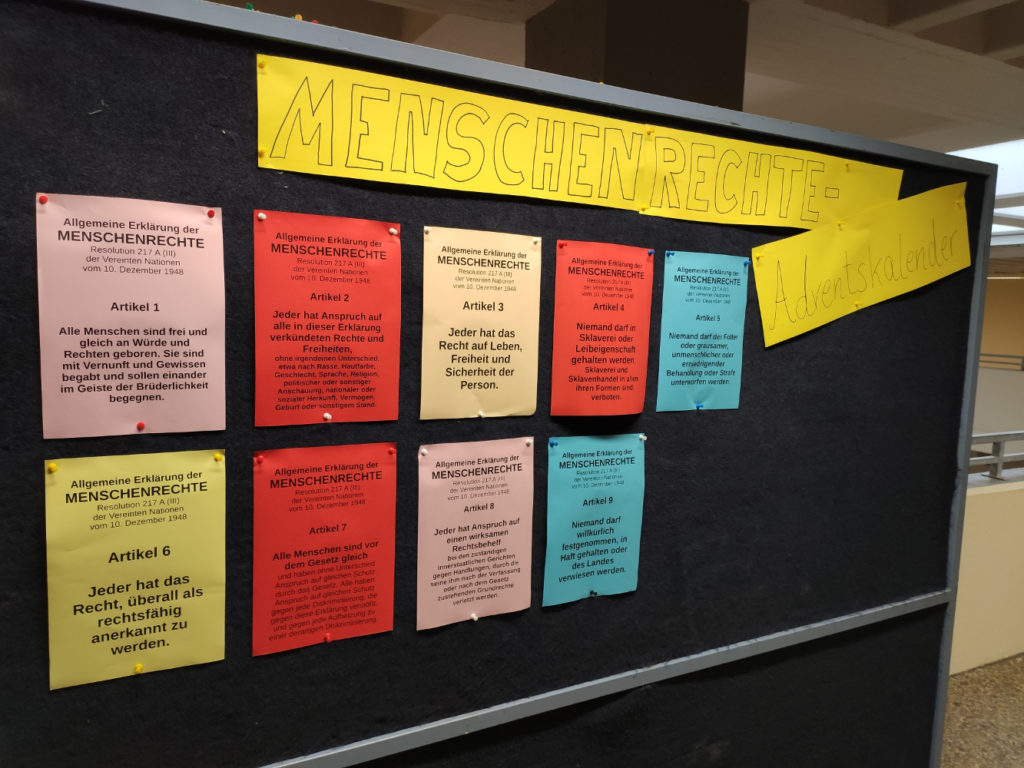 MENSCHENRECHTE-
Adventskalender
Allgemeine Erklärung der
MENSCHENRECHTE
Resolution 217 A (III)
der Vereinten Nationen
vom 10. Dezember 1948
Artikel 1
Alle Menschen sind frei und
gleich an Würde und
Rechten geboren. Sie sind
mit Vernunft und Gewissen
begabt und sollen einander
im Geiste der Brüderlichkeit
begegnen.
Allgemeine Erklärung der
MENSCHENRECHTE
Resolution 217 A (III)
der Vereinten Nationen
vom 10. Dezember 1948
Artikel 2
Jeder hat Anspruch auf
alle in dieser Erklärung
verkündeten Rechte und
Freiheiten,
ohne irgendeinen Unterschied,
etwa nach Rasse, Hautfarbe,
Geschlecht, Sprache, Religion,
politischer oder sonstiger
Anschauung, nationaler oder
sozialer Herkunft, Vermögen,
Geburt oder sonstigem Stand.
Allgemeine Erklärung der
MENSCHENRECHTE
Resolution 217 A (III)
der Vereinten Nationen
vom 10. Dezember 1948
Artikel 3
Jeder hat das
Recht auf Leben,
Freiheit und
Sicherheit der
Person.
Allgemeine Erklärung der
MENSCHENRECHTE
Resolution 217 A (III)
der Vereinten Nationen
vom 10. Dezember 1948
Artikel 4
Niemand darf in
Sklaverei oder
Leibeigenschaft
gehalten werden.
Sklaverei und
Sklavenhandel in allen
ihren Formen sind
verboten.
Allgemeine Erklärung der
MENSCHENRECHTE
Resolution 217 A (III)
der Vereinten Nationen
vom 10. Dezember 1948
Artikel 5
Niemand darf der Folter
oder grausamer,
unmenschlicher oder
erniedrigender
Behandlung oder Strafe
unterworfen werden.
Allgemeine Erklärung der
MENSCHENRECHTE
Resolution 217 A (III)
der Vereinten Nationen
vom 10. Dezember 1948
Artikel 6
Jeder hat das
Recht, überall als
rechtsfähig
anerkannt zu
werden.
Allgemeine Erklärung der
MENSCHENRECHTE
Resolution 217 A (III)
der Vereinten Nationen
vom 10. Dezember 1948
Artikel 7
Alle Menschen sind vor
dem Gesetz gleich
und haben ohne Unterschied
Anspruch auf gleichen Schutz
durch das Gesetz. Alle haben
Anspruch auf gleichen Schutz
gegen jede Diskriminierung, die
gegen diese Erklärung verstößt,
und gegen jede Aufhetzung zu
einer derartigen Diskriminierung.
Allgemeine Erklärung der
MENSCHENRECHTE
Resolution 217 A (III)
der Vereinten Nationen
vom 10. Dezember 1948
Artikel 8
Jeder hat Anspruch auf
einen wirksamen
Rechtsbehelf
bei den zuständigen
innerstaatlichen Gerichten
gegen Handlungen, durch die
seine ihm nach der Verfassung
oder nach dem Gesetz
zustehenden Grundrechte
verletzt werden.
Allgemeine Erklärung der
MENSCHENRECHTE
Resolution 217 A (III)
der Vereinten Nationen
vom 10. Dezember 1948
Artikel 9
Niemand darf
willkürlich
festgenommen, in
Haft gehalten oder
des Landes
verwiesen werden.